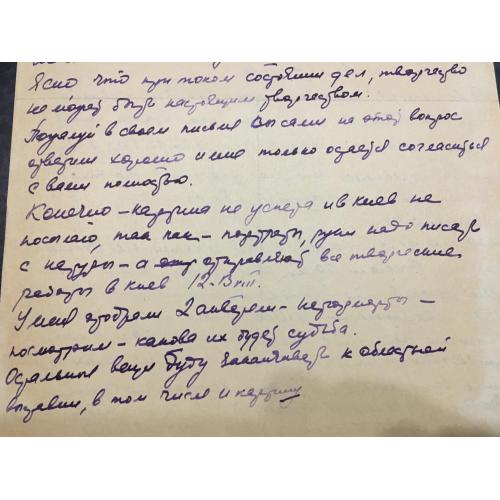 Ясно что при таком состоянии дел, творчество
не может быть настоящим творчеством.
Пожалуй в своем письме Вы сами на этот вопрос
ответили хорошо и мне только остается согласиться
с вами полностью.
Конечно – картина не успела и в Киев не
посылаю, так как – портреты, руки надо писать
с натуры – а отправляют все творческие
работы в Киев 12-VIII.
У меня отобрали 2 акварели – натюрморты –
посмотрим – какова их будет судьба.
Остальные вещи буду заканчивать к областной
выставки, в том числе и картину